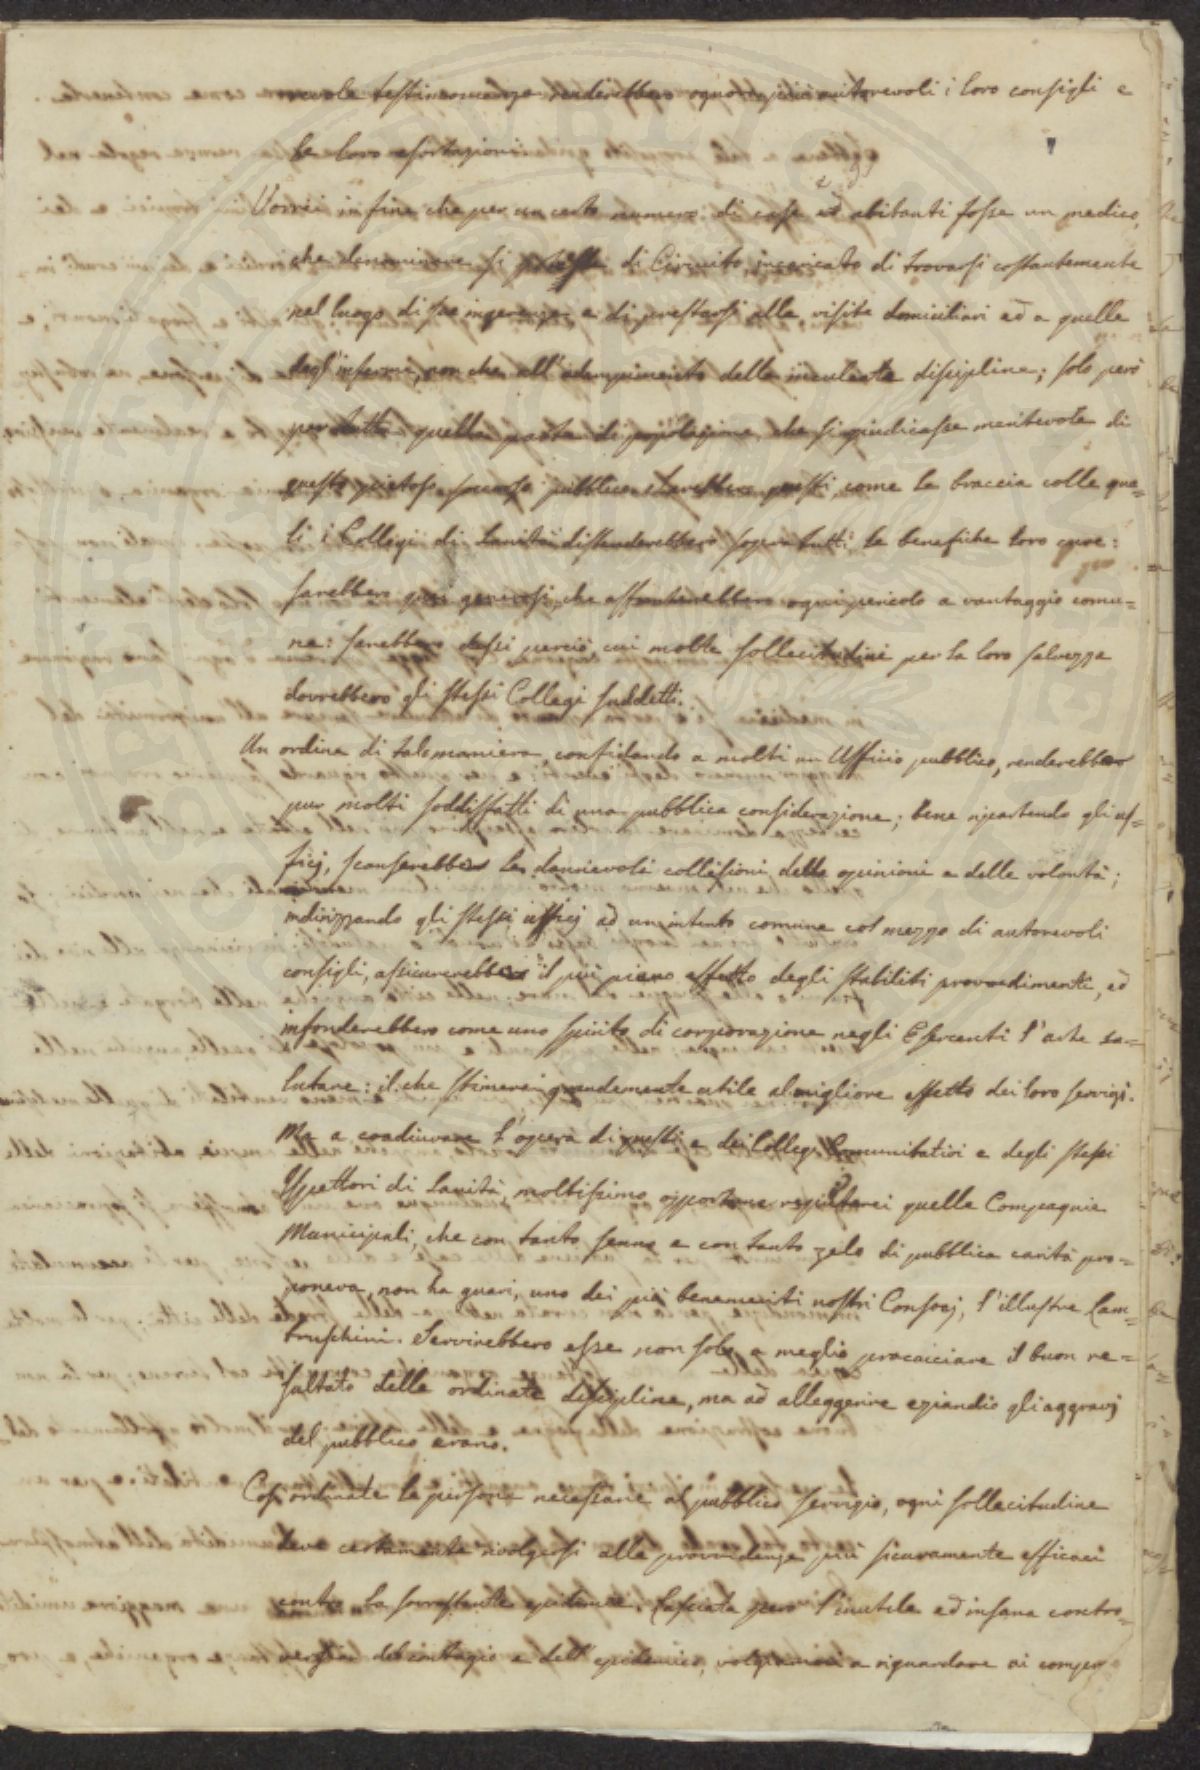 revole testimonianza renderebbero ognora più autorevoli i loro consigli e
le loro esortazioni.
Vorrei in fine che per un certo numero di case e di abitanti fosse un medico,
che denominare si potesse di Circuito, incaricato di trovarsi costantemente
nel luogo di sua ingerenza e di prestarsi alle visite domiciliari ed a quelle
degl'infermi, non che all'adempimento delle inculcate discipline; solo però
per tutta quella parte di popolazione, che si giudicasse meritevole di
questo pietoso soccorso pubblico. Sarebbero questi come le braccia colle qua=
li i Collegi di Sanità distenderebbero sopra tutti le benefiche loro cure:
sarebbero quei generosi, che affronterebbero ogni pericolo a vantaggio comu=
ne: sarebbero dessi perciò, cui molte sollecitudini per la loro salvezza
dovrebbero gli stessi Collegi suddetti.
Un ordine di tale maniera, confidando a molti un Ufficio pubblico, renderebbe
pur molti soddisfatti di una pubblica considerazione; bene ripartendo gli uf=
ficj, scanserebbe le dannevoli collisioni delle opinioni e delle volontà;
indirizzando gli stessi ufficj ad un intento comune col mezzo di autorevoli
consigli, assicurerebbe il più pieno effetto degli stabiliti provvedimenti, ed
infonderebbero come uno spirito di corporazione negli Esercenti l'arte sa=
lutare: il che stimerei grandemente utile al migliore effetto dei loro servigi.
Ma a coadiuvare l'opera di questi e dei Collegi Comunitativi e degli stessi
Ispettori di Sanità, moltissimo opportune reputerei quelle Compagnie
Municipali, che con tanto senno e con tanto zelo di pubblica carità pro=
poneva, non ha guari, uno dei più benemeriti nostri Consocj, l'illustre Lam=
bruschini. Servirebbero esse non solo a meglio procacciare il buon re=
sultato delle ordinate discipline, ma ad alleggerire eziandio gli aggravj
del pubblico erario.
Così ordinate le persone necessarie al pubblico servigio, ogni sollecitudine
deve certamente rivolgersi alle provvidenze più sicuramente efficaci
contro la sovrastante epidemia. Lasciata però l'inutile ed insana contro=
versia del contagio e dell'epidemico, volgiamoci a riguardare ai comper